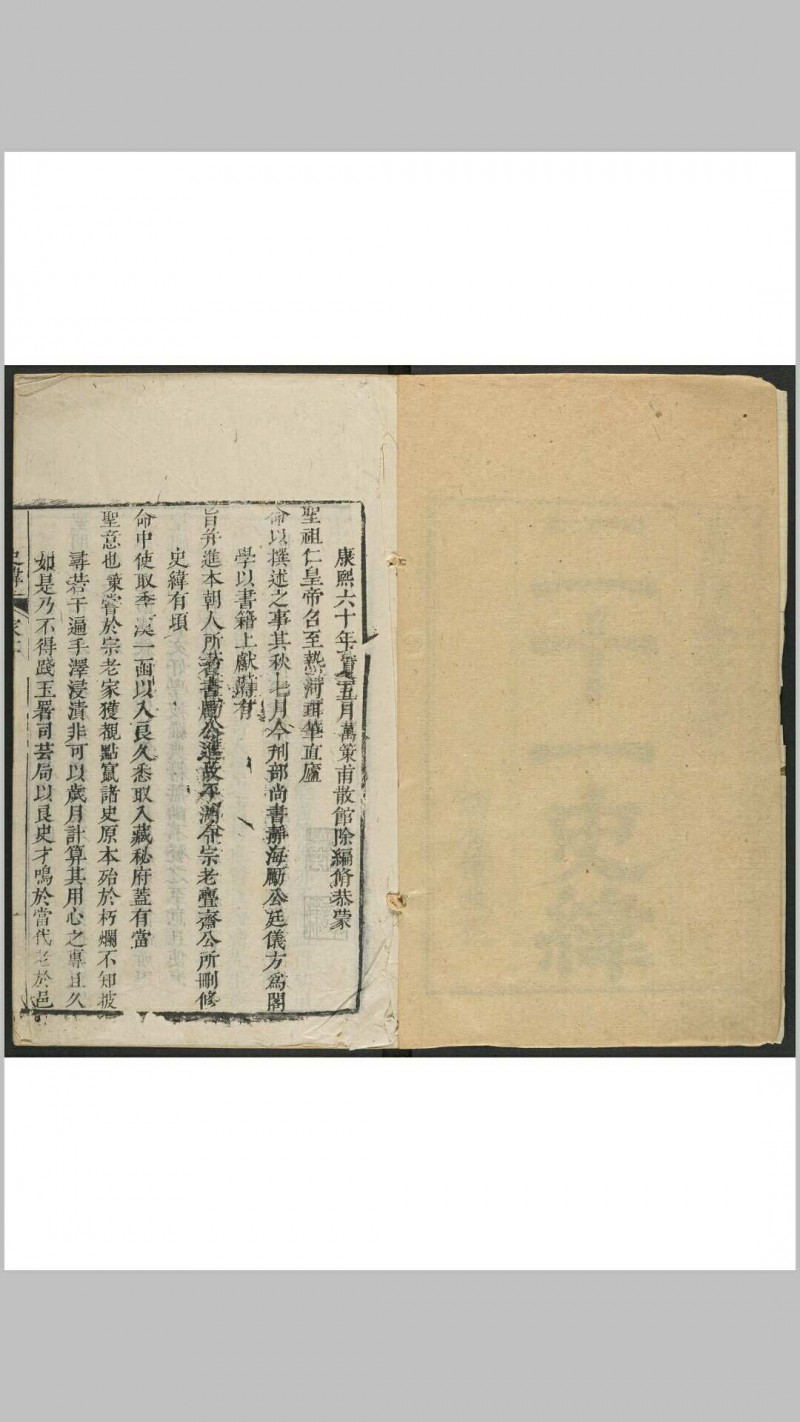 康熙六十年夏五月萬策甫散館除編脩恭蒙
聖祖仁皇帝召至熱河珥筆直廬
命以撰述之事其秋七月今刑部尚書靜海勵公廷儀方爲閣
學以書籍上獻時有
旨幷進本朝人所著書勵公進故平湖令宗老壐齋公所刪修
史緯有頃
命中使取季漢一函以入良久悉取入藏秘府蓋有當
聖意也策嘗於宗老家獲觀點竄諸史原本殆於朽爛不知披
尋若干遍手澤浸漬非可以歲月計算其用心之專且久
如是乃不得踐玉署司芸局以良史才鳴於當代老於邑
史緯